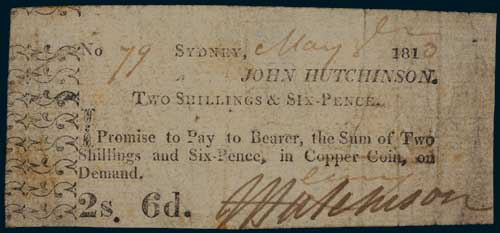 No 79 SYDNEY, May 1813
JOHN HUTCHINSON.
TWO SHILLINGS & SIX-PENCE.
I Promise to Pay to Bearer, the Sum of Two
Shillings and Six-Pence, in Copper Coin, on
Demand.
2s. 6d. J Hutchinson